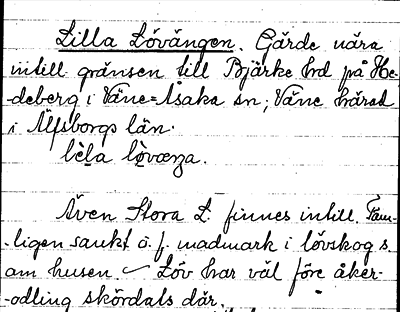 Lilla Lövängen. Gärde nära
intill gränsen till Bjärke hrd på He-
-deberg i Väne=Åsaka sn; Väne härad
i Älfsborgs län.
Även Stora L. finnes intill. Täm-
-ligen sankt ö. f. madmark i lövskog s.
om husen. Löv har väl före åker-
-odling skördats där.